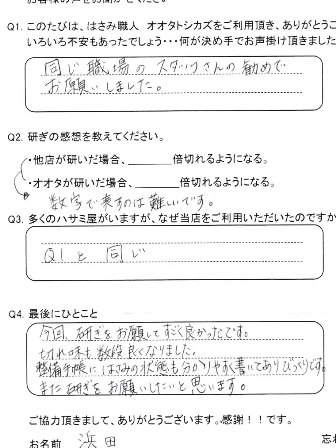 Q1. このたびは、はさみ職人 オオタトシカズをご利用頂き、ありがとうご
いろいろ不安もあったでしょう・・・何が決め手でお声掛け頂きました
同じ職場のスタッフさんの勧めで
お願いしました。
Q2. 研ぎの感想を教えてください。
・他店が研いだ場合、______倍切れるようになる。
・オオタが研いだ場合、______倍切れるようになる。
数字で表すのは難しいです。
Q3. 多くのハサミ屋がいますが、なぜ当店をご利用いただいたのですか
Q1と同じ
Q4. 最後にひとこと
今回、研ぎをお願いしてすごく良かったです。
切れ味も数段良くなりました。
整備手帳にはさみの状態も分かりやすく書いてありびっくりです。
また研ぎをお願いしたいと思います。
ご協力頂きまして、ありがとうございます。感謝！！です。
お名前 浜田